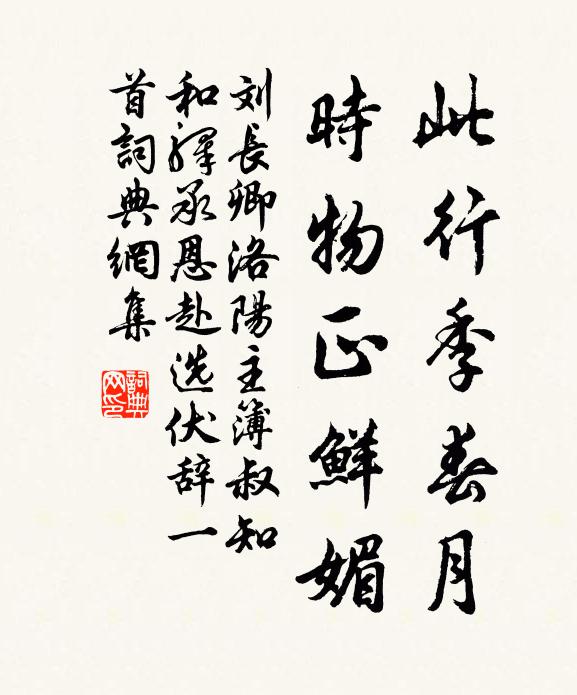 此行季春月
時物正鮮媚
刘長卿洛陽主簿叔知
和驛承恩赴选伏辞一
首詞典網集
詞典網印